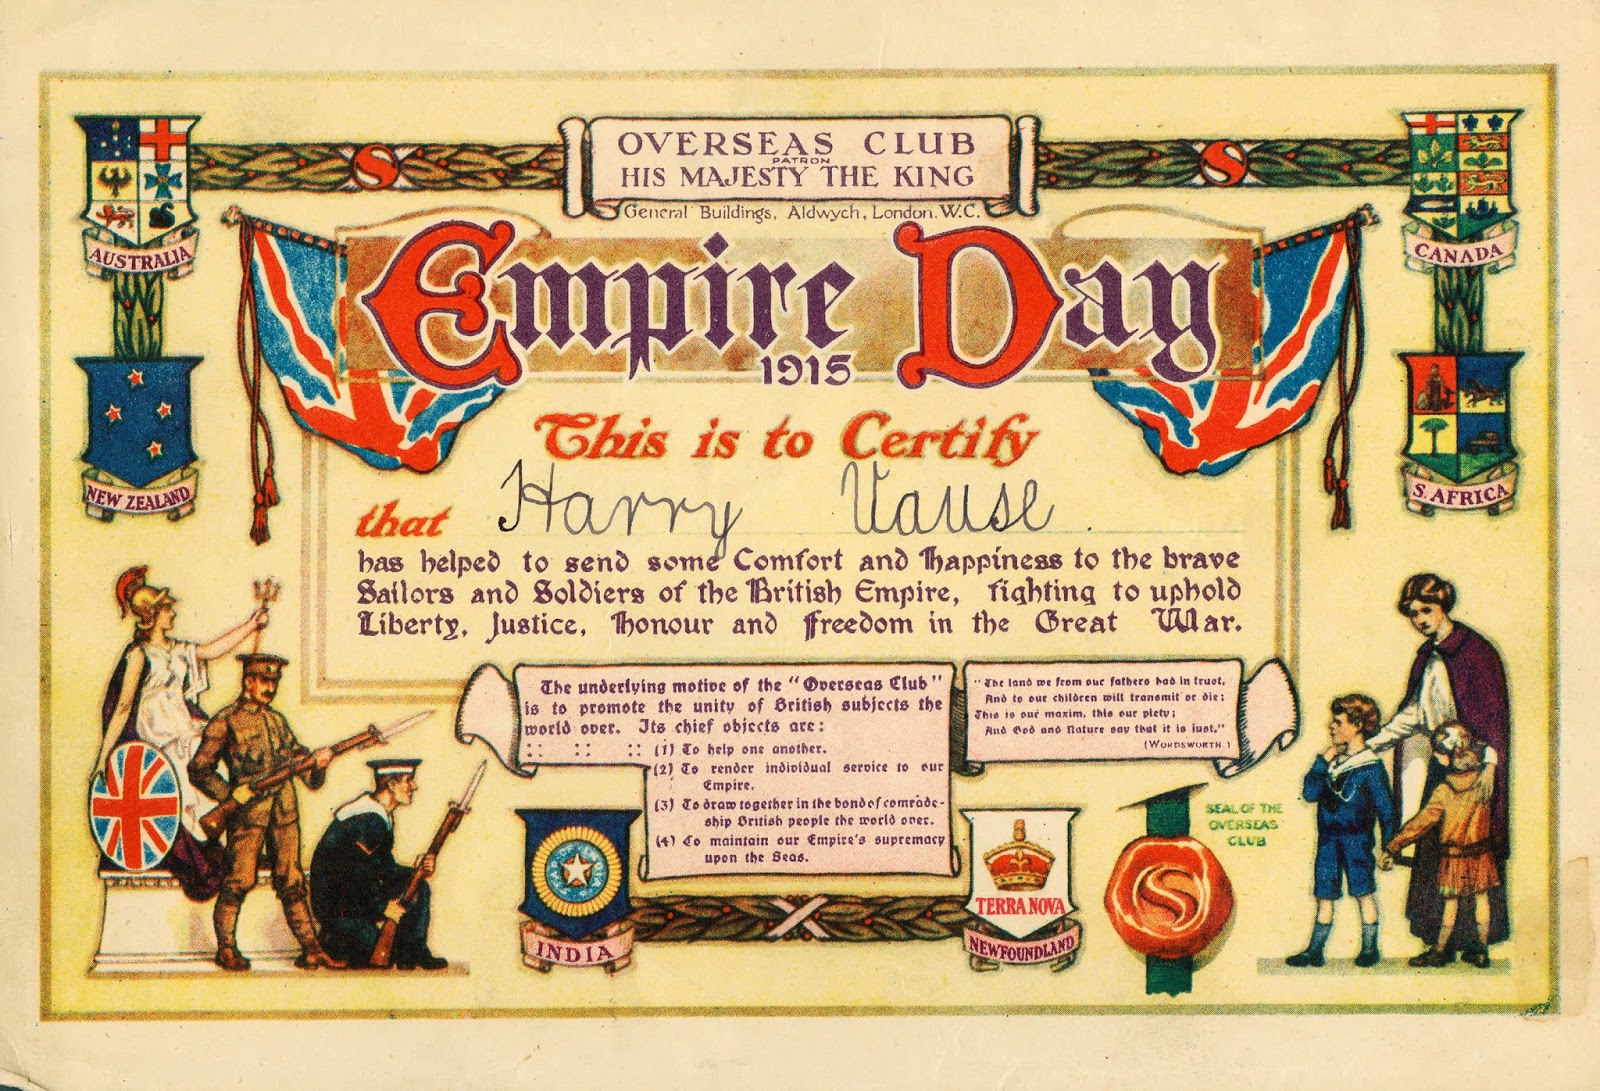 OVERSEAS CLUB
PATRON
HIS MAJESTY THE KING
General Buildings, Aldwych, London. W.C.
Empire Day
1915
This is to Certify
that Harry Vause.
has helped to send some Comfort and Happiness to the brave
Sailors and Soldiers of the British Empire, fighting to uphold
Liberty, Justice, Honour and Freedom in the Great War.
The underlying motive of the "Overseas Club"
is to promote the unity of British subjects the
world over. Its chief objects are:
(1) To help one another.
(2) To render individual service to our
Empire.
(3) To draw together in the bond of comrade-
ship British people the world over.
(4) To maintain our Empire's supremacy
upon the Seas.
"The land we from our fathers had in trust,
And to our children will transmit or die:
This is our maxim, this our piety;
And God and Nature say that it is just."
(WORDSWORTH.)
AUSTRALIA
NEW ZEALAND
CANADA
S. AFRICA
INDIA
TERRA NOVA
NEWFOUNDLAND
S
S
S
SEAL OF THE
OVERSEAS
CLUB